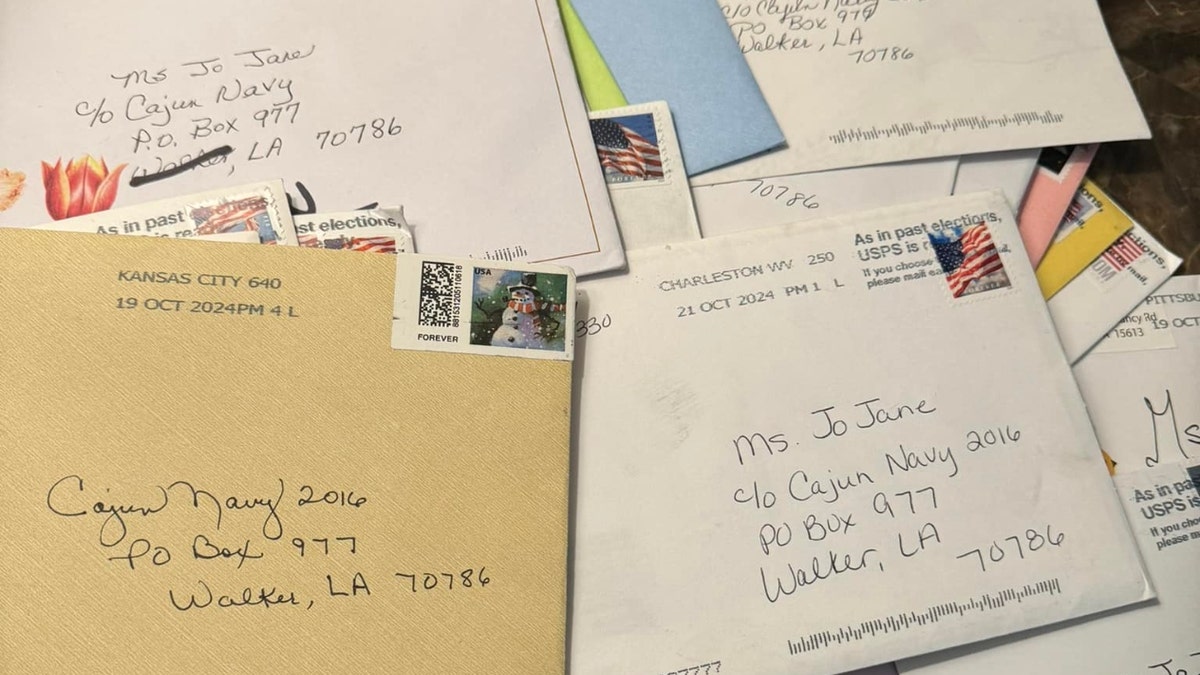 Ms Jo Jane
c/o Cajun Navy
P.O. Box 977
Walker, LA 70786
c/o Cajun Navy
PO Box 979
Walker, LA
70786
70786
As in past elections
st elections,
KANSAS CITY 640
19 OCT 2024PM 4 L
USA
FOREVER
Cajun Navy 2016
PO Box 977
Walker, LA 70786
330
CHARLESTON WV 250
21 OCT 2024 PM 1 L
As in past elections,
USPS is r
If you choose
please mail ea
Ms. Jo Jane
c/o Cajun Navy 2016
PO Box 977
Walker, LA 70786
7777
mail,
PITTSBU
ncy Rd
15613
19 OCT
Ms
As in pa
USPS is
If you ch
please m
Jo